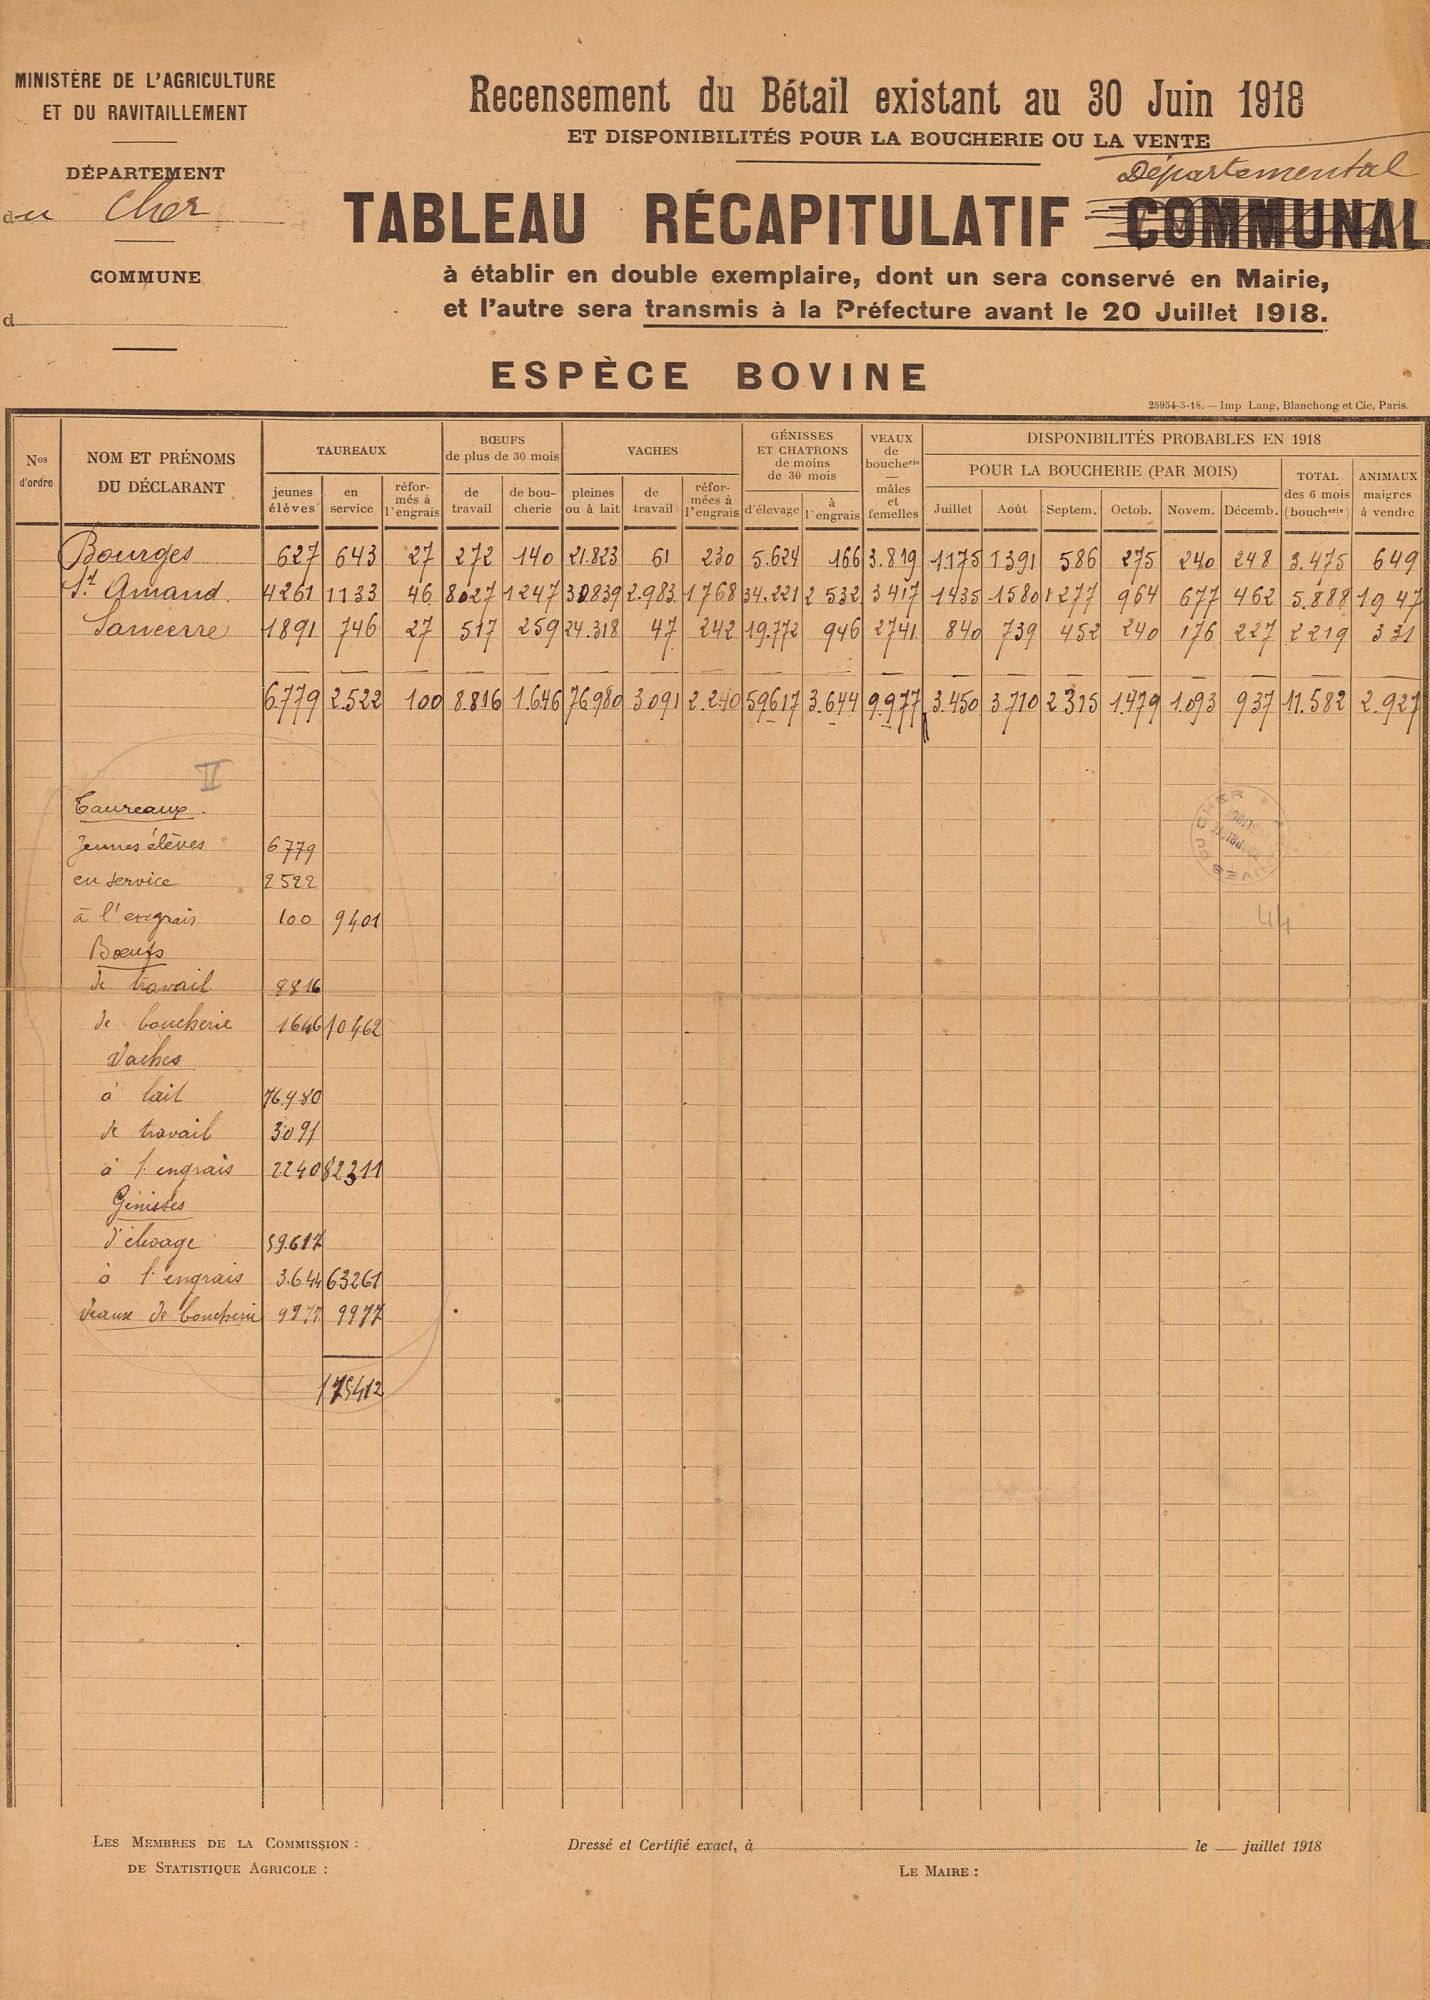 MINISTÈRE DE L'AGRICULTURE
ET DU RAVITAILLEMENT
DÉPARTEMENT
du Cher
COMMUNE
d
Recensement du Bétail existant au 30 Juin 1918
ET DISPONIBILITÉS POUR LA BOUCHERIE OU LA VENTE
Départemental
TABLEAU RÉCAPITULATIF COMMUNAL
à établir en double exemplaire, dont un sera conservé en Mairie,
et l'autre sera transmis à la Préfecture avant le 20 Juillet 1918.
ESPÈCE BOVINE
25954-5-18. — Imp Lang, Blanchong et Cie, Paris.
Nos d'ordre
NOM ET PRÉNOMS DU DÉCLARANT
TAUREAUX
jeunes élèves
en service
réformés à l'engrais
BŒUFS de plus de 30 mois
de travail
de boucherie
VACHES
pleines ou à lait
de travail
réformées à l'engrais
GÉNISSES ET CHATRONS de moins de 30 mois
d'élevage
à l'engrais
VEAUX de boucherie — mâles et femelles
DISPONIBILITÉS PROBABLES EN 1918
POUR LA BOUCHERIE (PAR MOIS)
Juillet Août Septem. Octob. Novem. Décemb.
TOTAL des 6 mois (boucherie)
ANIMAUX maigres à vendre
Bourges 627 643 27 272 140 21.823 61 230 5.624 166 3.819 1175 1391 586 275 240 248 3.475 649
St Amand 4261 1133 46 8027 1247 30839 2.983 1768 34.221 2532 3417 1435 1580 1277 964 677 462 5.888 1947
Sancerre 1891 746 27 517 259 24.318 47 242 19.772 946 2741 840 739 452 240 176 227 2219 331
6.779 2.522 100 8.816 1.646 76.980 3.091 2.240 59617 3.644 9.977 3.450 3.710 2315 1479 1.093 937 11.582 2.927
II
Taureaux.
Jeunes élèves 6779
en service 2522
à l'engrais 100 9401
Bœufs
de travail 8816
de boucherie 1646 10462
Vaches
à lait 76.980
de travail 3091
à l'engrais 2240 82311
Génisses
d'élevage 59.617
à l'engrais 3.644 63261
Veaux de boucherie 9977 9977
175412
44
LES MEMBRES DE LA COMMISSION :
DE STATISTIQUE AGRICOLE :
Dressé et Certifié exact, à le juillet 1918
LE MAIRE :